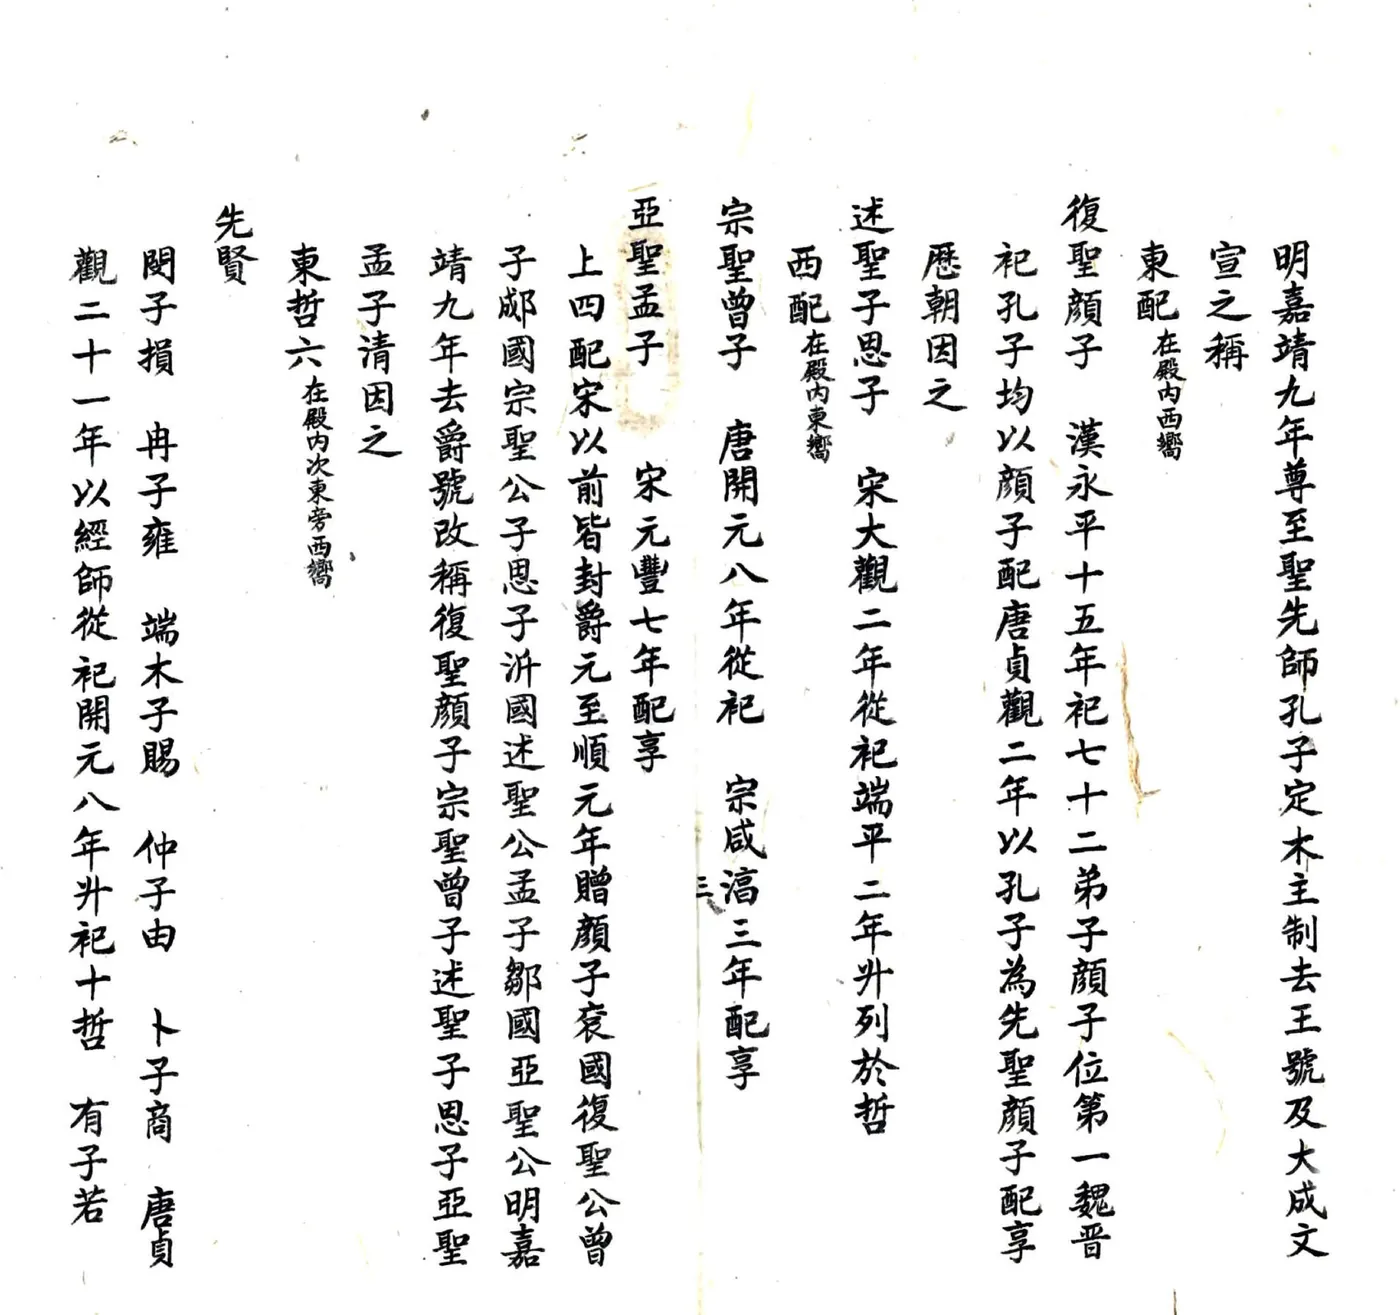 明嘉靖九年尊至聖先師孔子定木主制去王號及大成文
宣之稱
東配在殿內西嚮
復聖顏子　漢永平十五年祀七十二弟子顏子位第一魏晋
祀孔子均以顏子配唐貞觀二年以孔子為先聖顏子配享
歷朝因之
述聖子思子　宋大觀二年從祀端平二年升列於哲
西配在殿內東嚮
宗聖曾子　唐開元八年從祀　宗咸淳三年配享
三
亞聖孟子　宋元豐七年配享
上四配宋以前皆封爵元至順元年贈顏子兗國復聖公曾
子郕國宗聖公子思子沂國述聖公孟子鄒國亞聖公明嘉
靖九年去爵號改稱復聖顏子宗聖曾子述聖子思子亞聖
孟子清因之
東哲六在殿內次東旁西嚮
先賢
閔子損　冉子雍　端木子賜　仲子由　卜子商　唐貞
觀二十一年以經師從祀開元八年升祀十哲　有子若